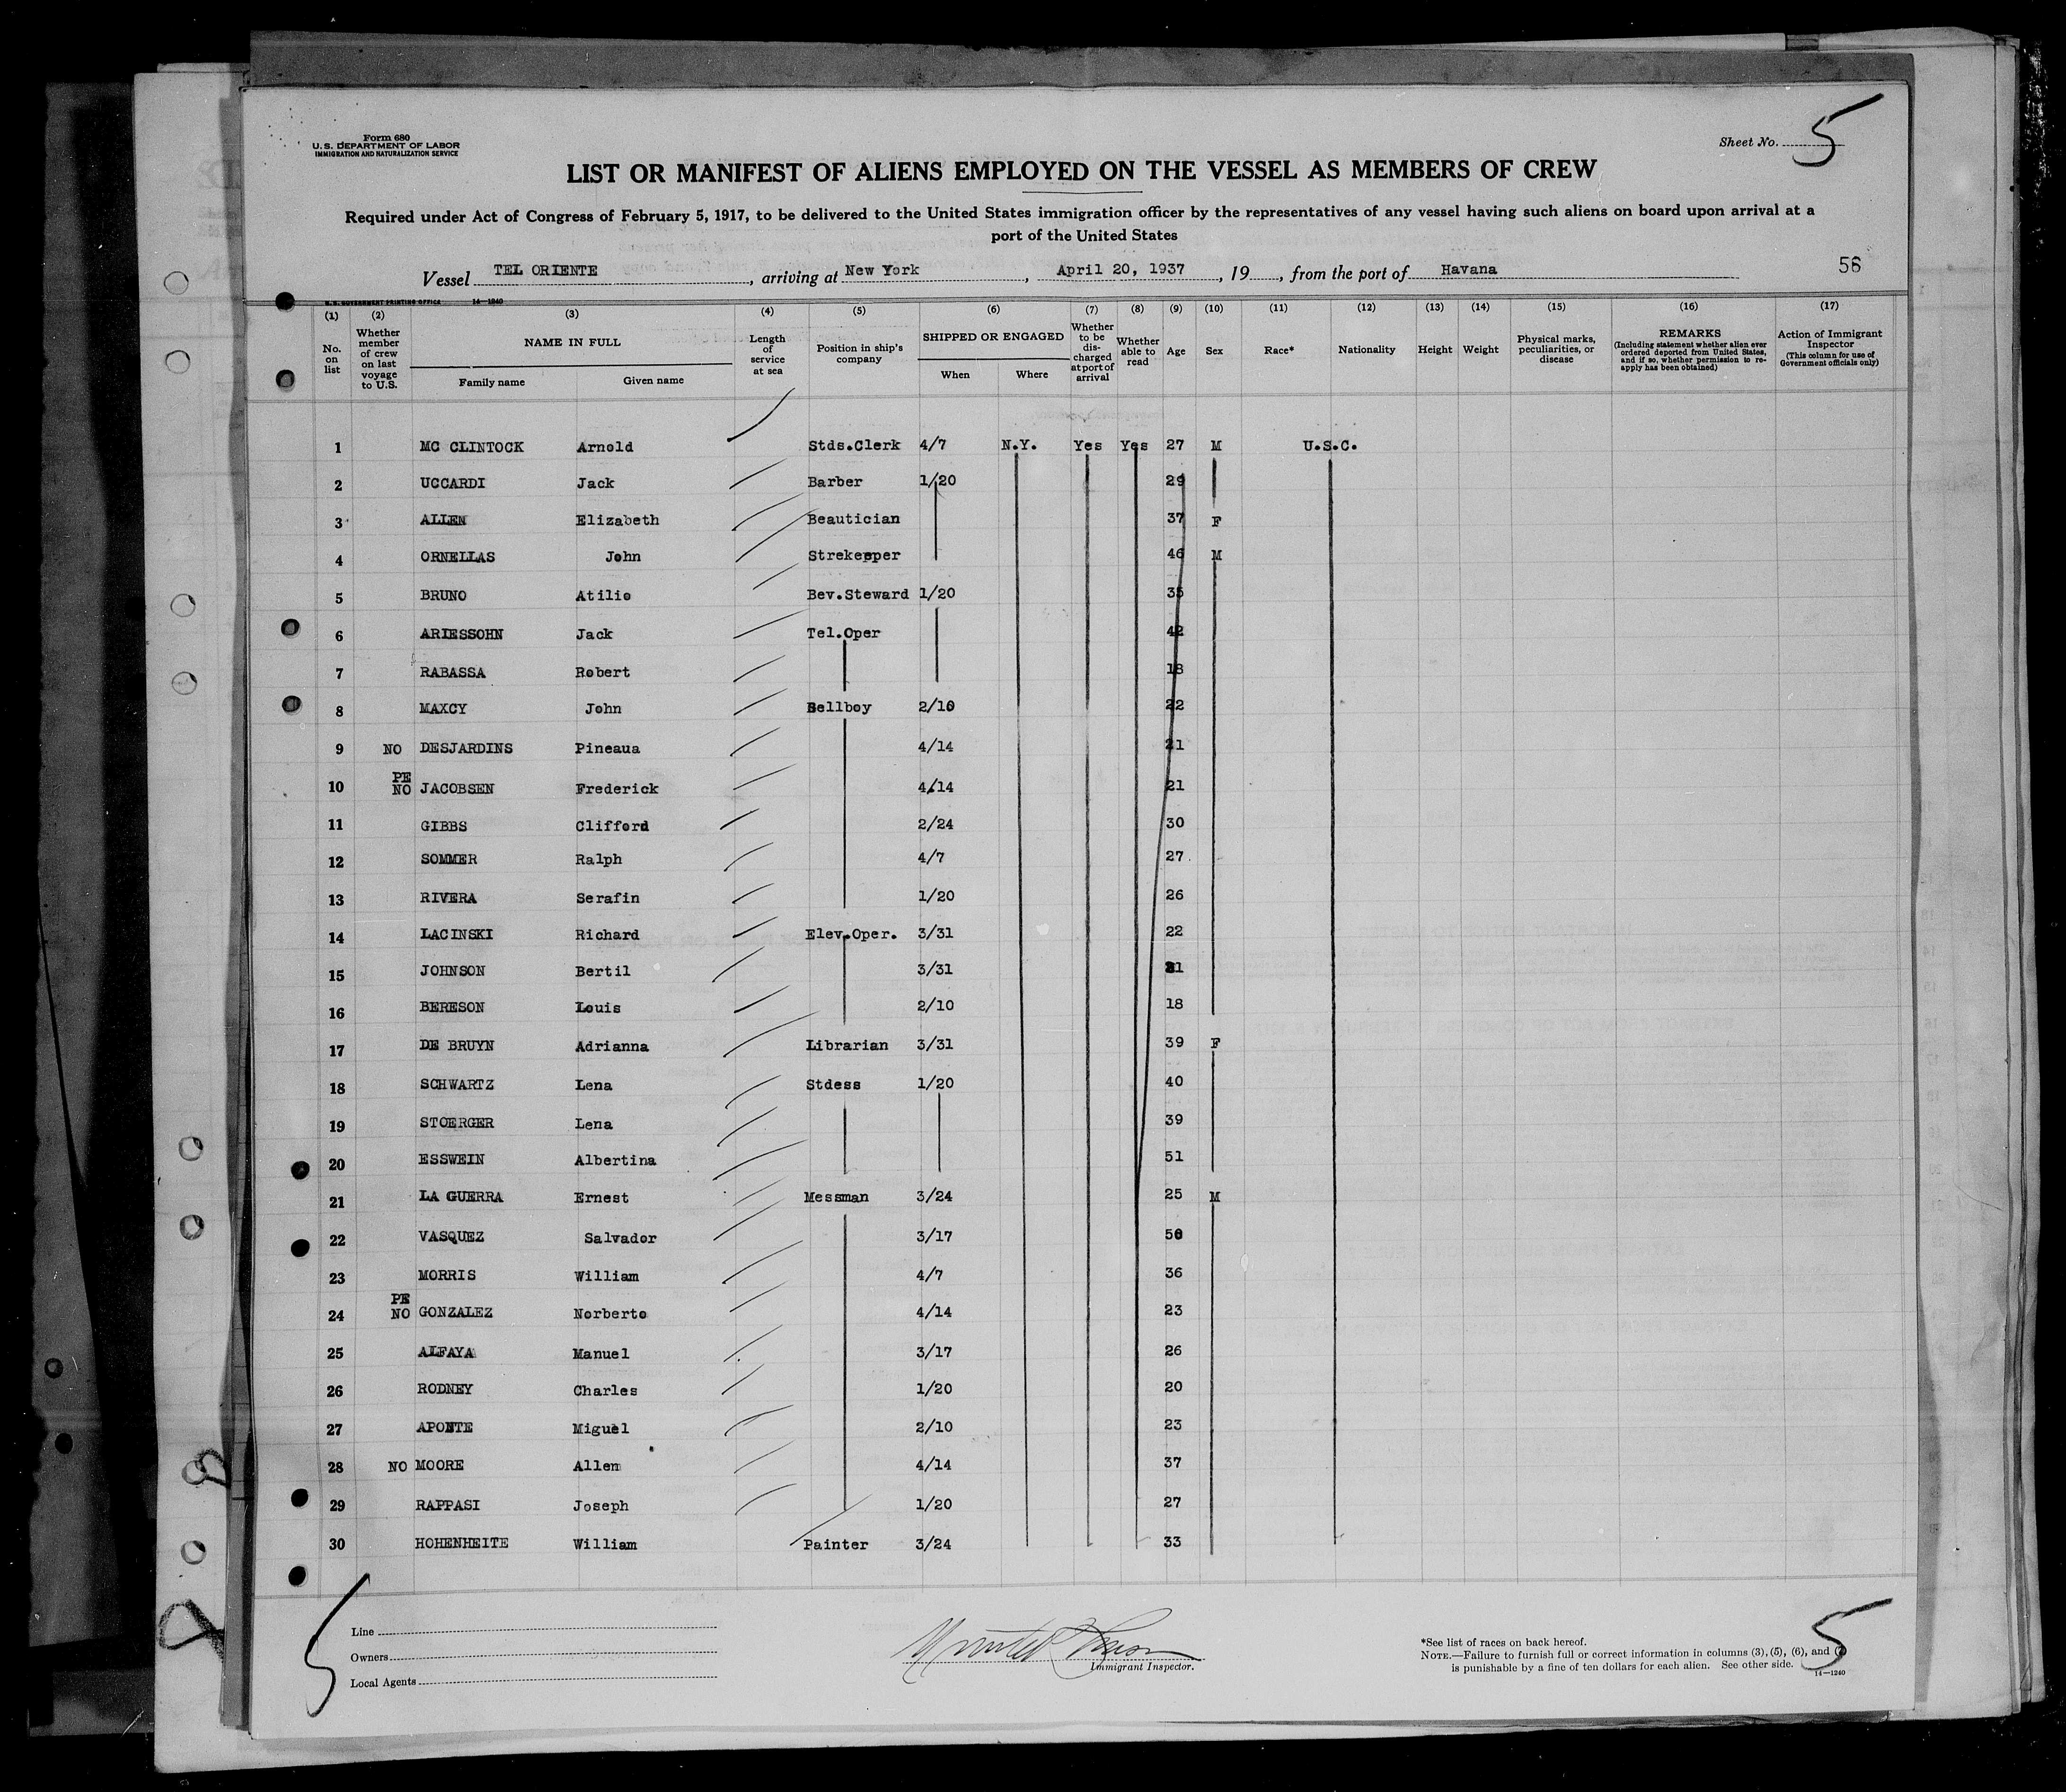 Form 680
U. S. DEPARTMENT OF LABOR
IMMIGRATION AND NATURALIZATION SERVICE
Sheet No. 5
LIST OR MANIFEST OF ALIENS EMPLOYED ON THE VESSEL AS MEMBERS OF CREW
Required under Act of Congress of February 5, 1917, to be delivered to the United States immigration officer by the representatives of any vessel having such aliens on board upon arrival at a
port of the United States
Vessel TEL ORIENTE, arriving at New York, April 20, 1937, 19, from the port of Havana 56
U. S. GOVERNMENT PRINTING OFFICE 14—1240
(1) (2) (3) (4) (5) (6) (7) (8) (9) (10) (11) (12) (13) (14) (15) (16) (17)
No. on list
Whether member of crew on last voyage to U.S.
NAME IN FULL
Family name Given name
Length of service at sea
Position in ship's company
SHIPPED OR ENGAGED
When Where
Whether to be discharged at port of arrival
Whether able to read
Age
Sex
Race*
Nationality
Height
Weight
Physical marks, peculiarities, or disease
REMARKS
(Including statement whether alien ever ordered deported from United States, and if so, whether permission to reapply has been obtained)
Action of Immigrant Inspector
(This column for use of Government officials only)
1 MC CLINTOCK Arnold Stds.Clerk 4/7 N.Y. Yes Yes 27 M U.S.C.
2 UCCARDI Jack Barber 1/20 29
3 ALLEN Elizabeth Beautician 37 F
4 ORNELLAS John Strekeeper 46 M
5 BRUNO Atilio Bev.Steward 1/20 35
6 ARIESSOHN Jack Tel.Oper 42
7 RABASSA Robert 18
8 MAXCY John Bellboy 2/10 22
9 NO DESJARDINS Pineaua 4/14 21
10 PE NO JACOBSEN Frederick 4/14 21
11 GIBBS Clifford 2/24 30
12 SOMMER Ralph 4/7 27
13 RIVERA Serafin 1/20 26
14 LACINSKI Richard Elev.Oper. 3/31 22
15 JOHNSON Bertil 3/31 21
16 BERESON Louis 2/10 18
17 DE BRUYN Adrianna Librarian 3/31 39 F
18 SCHWARTZ Lena Stdess 1/20 40
19 STOERGER Lena 39
20 ESSWEIN Albertina 51
21 LA GUERRA Ernest Messman 3/24 25 M
22 VASQUEZ Salvador 3/17 50
23 MORRIS William 4/7 36
24 PE NO GONZALEZ Norberto 4/14 23
25 ALFAYA Manuel 3/17 26
26 RODNEY Charles 1/20 20
27 APONTE Miguel 2/10 23
28 NO MOORE Allen 4/14 37
29 RAPPASI Joseph 1/20 27
30 HOHENHEITE William Painter 3/24 33
Line
Owners
Local Agents
Immigrant Inspector.
*See list of races on back hereof.
NOTE.—Failure to furnish full or correct information in columns (3), (5), (6), and (7)
is punishable by a fine of ten dollars for each alien. See other side.
14—1240
5
5